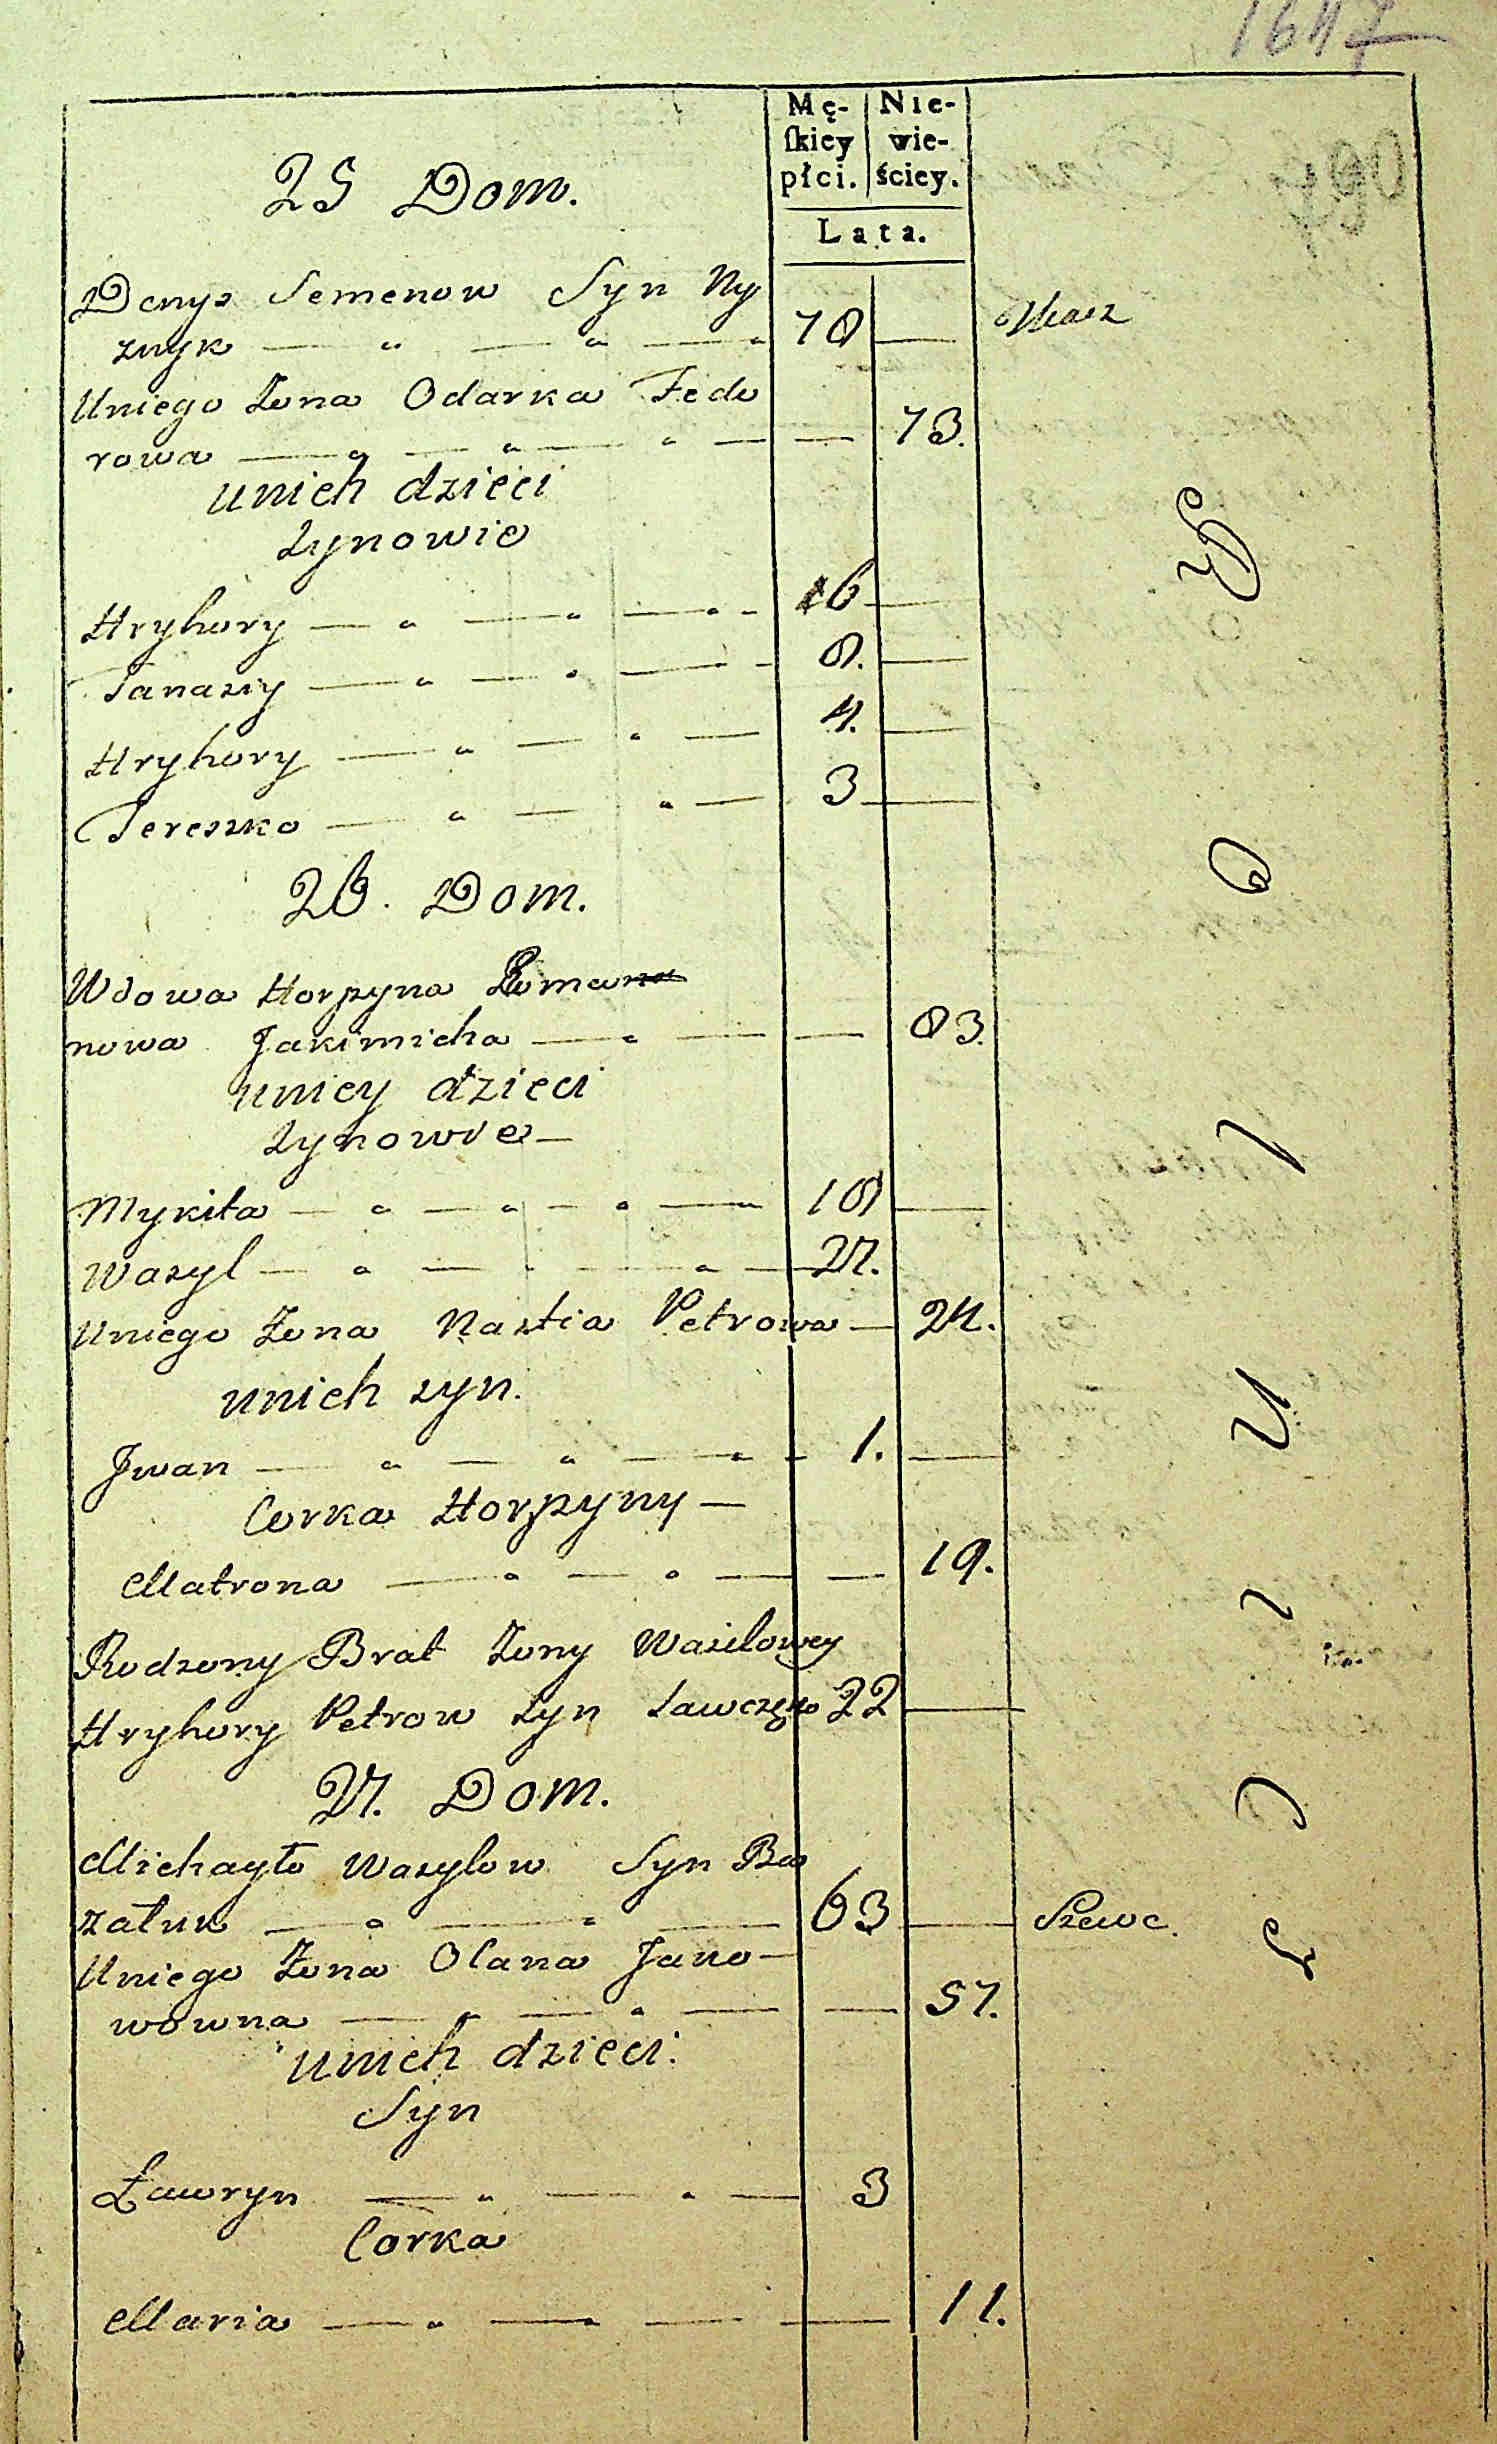 1647
Mę-
skiey
płci.
Nie-
wie-
ściey.
Lata.
25 Dom.
Denys Semenow Syn Ny
znyk — " — " — " 78 — Tkacz
Uniego Żona Odarka Fedo
rowa — " — " — " — — 73.
unich dzieci
synowie
Hryhory — " — " — " - 16 —
Tanasiy — " — " — - 8. —
Hryhory — " — " — 4. —
Tereszko — " — " — 3 —
26. Dom.
Wdowa Horpyna Roma
nowa Jakimicha — " — — 83.
uniey dzieci
synowie —
Mykita — " — " — " — 18 —
Wasyl — " — " — " — 27.
Uniego Żona Nastia Petrowa — 24.
unich syn.
Jwan — " — " — " - 1. —
Corka Horpyny —
Matrona — " — " — — 19.
Rodzony Brat Żony Wasilowey
Hryhory Petrow syn Sawczuko 22 —
27. Dom.
Michayło Wasylow Syn Ba
załuk — " — " — 63 — Szewc.
Uniego Żona Olana Jano —
wowna — " — " — — 57.
unich dzieci.
Syn
Ławryn — " — " — 3
Corka
Maria — " — " — — 11.